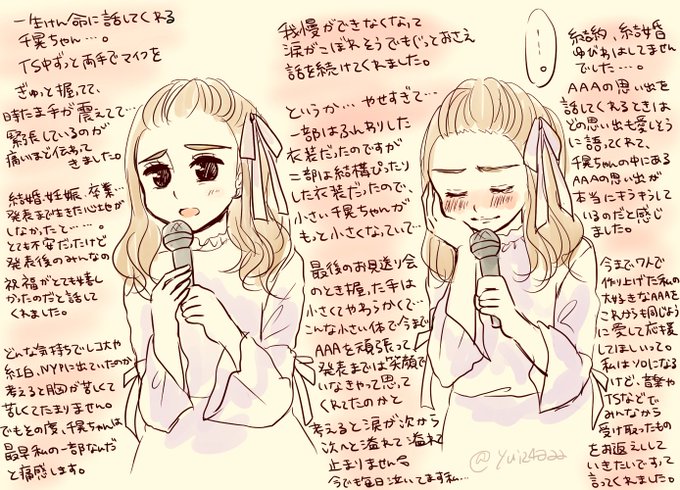 一生けん命に話してくれる
千晃ちゃん…。
TS中ずっと両手でマイクを
ぎゅっと握ってて、
時たま手が震えてて…
緊張しているのが
痛いほど伝わって
きました。
結婚、妊娠、卒業…
発表まで生きた心地が
しなかったと…。
とても不安だったけど
発表後のみんなの
祝福がとても嬉し
かったのだと話して
くれました。
どんな気持ちでレコ大や
紅白、NYPに出ていたのか
考えると胸が苦しくて
苦しくてたまりません。
でもその度、千晃ちゃんは
最早私の一部なんだ
と痛感します。
我慢ができなくなって
涙がこぼれそうでもぐっとおさえ
話を続けてくれました。
というか…やせすぎて…
一部はふんわりした
衣装だったのですが
二部は結構ぴったり
した衣装だったので、
小さい千晃ちゃんが
もっと小さくなっていて…
最後のお見送り会
のとき握った手は
小さくてやわらかくて…
こんな小さい体で今まで
AAAを頑張って
発表までは笑顔で
いなきゃって思って
くれてたのかと
考えると涙が次から
次へと溢れて溢れて
止まりません。
今でも毎日泣いてます私…
…。
結局、結婚
ゆびわはしてません
でした…。
AAAの思い出を
話してくれるときは
どの思い出も愛しそう
に語ってくれて、
千晃ちゃんの中にある
AAAの思い出が
本当にキラキラして
いるのだと感じ
ました。
今まで7人で
作り上げた私の
大好きなAAAを
これからも同じように
に愛して応援
してほしいって。
私はソロになる
けど、音楽や
TSなどで
みんなから
受け取ったもの
をお返しして
いきたいですって
言ってくれました。
@yui24aaa